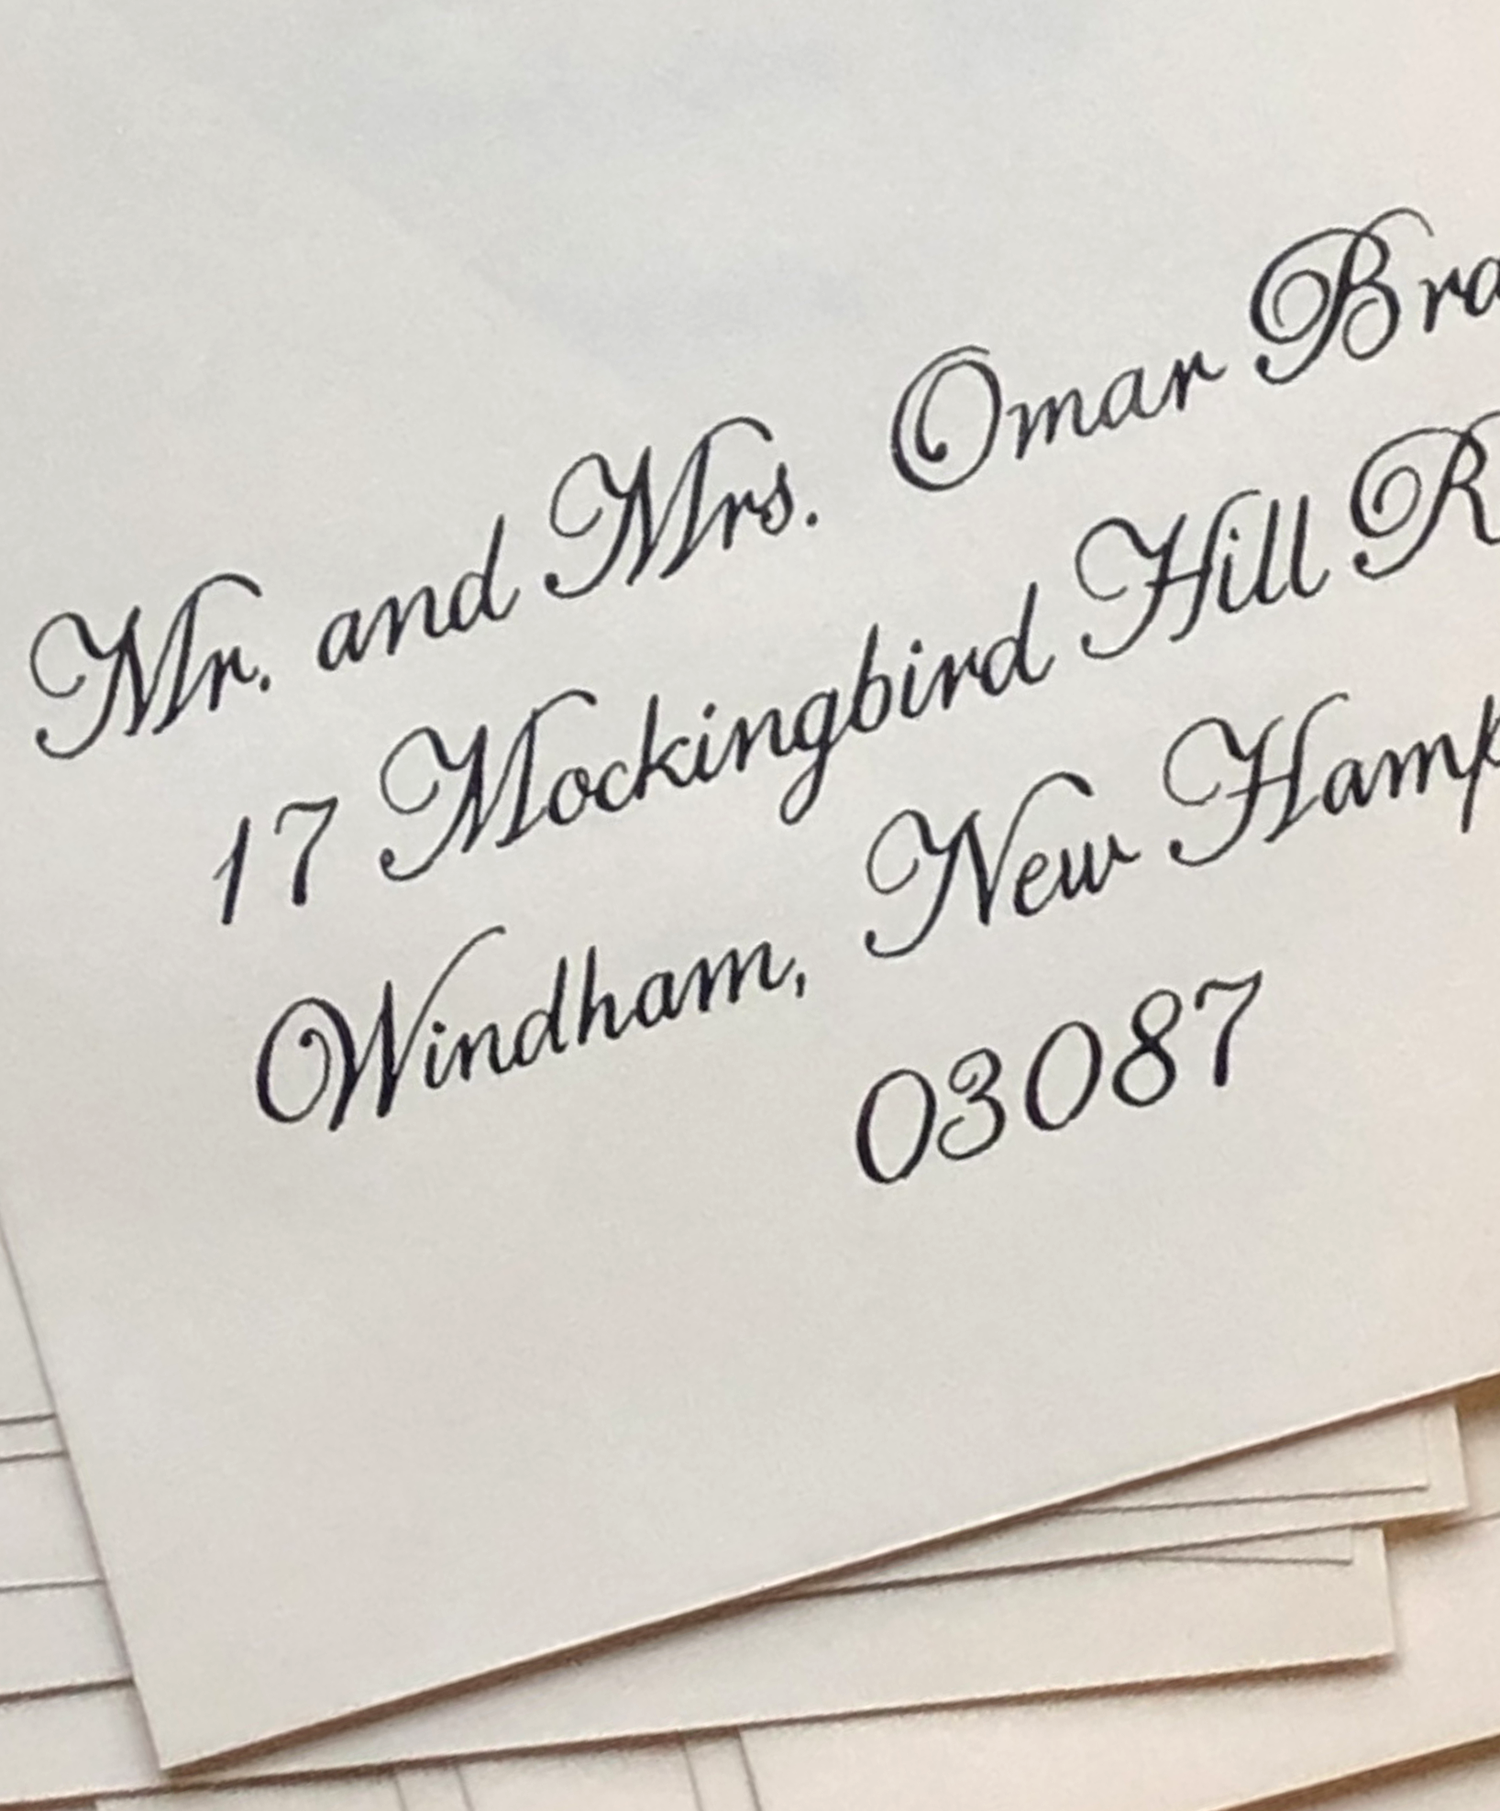 Mr. and Mrs. Omar Bra
17 Mockingbird Hill R
Windham, New Hamp
03087